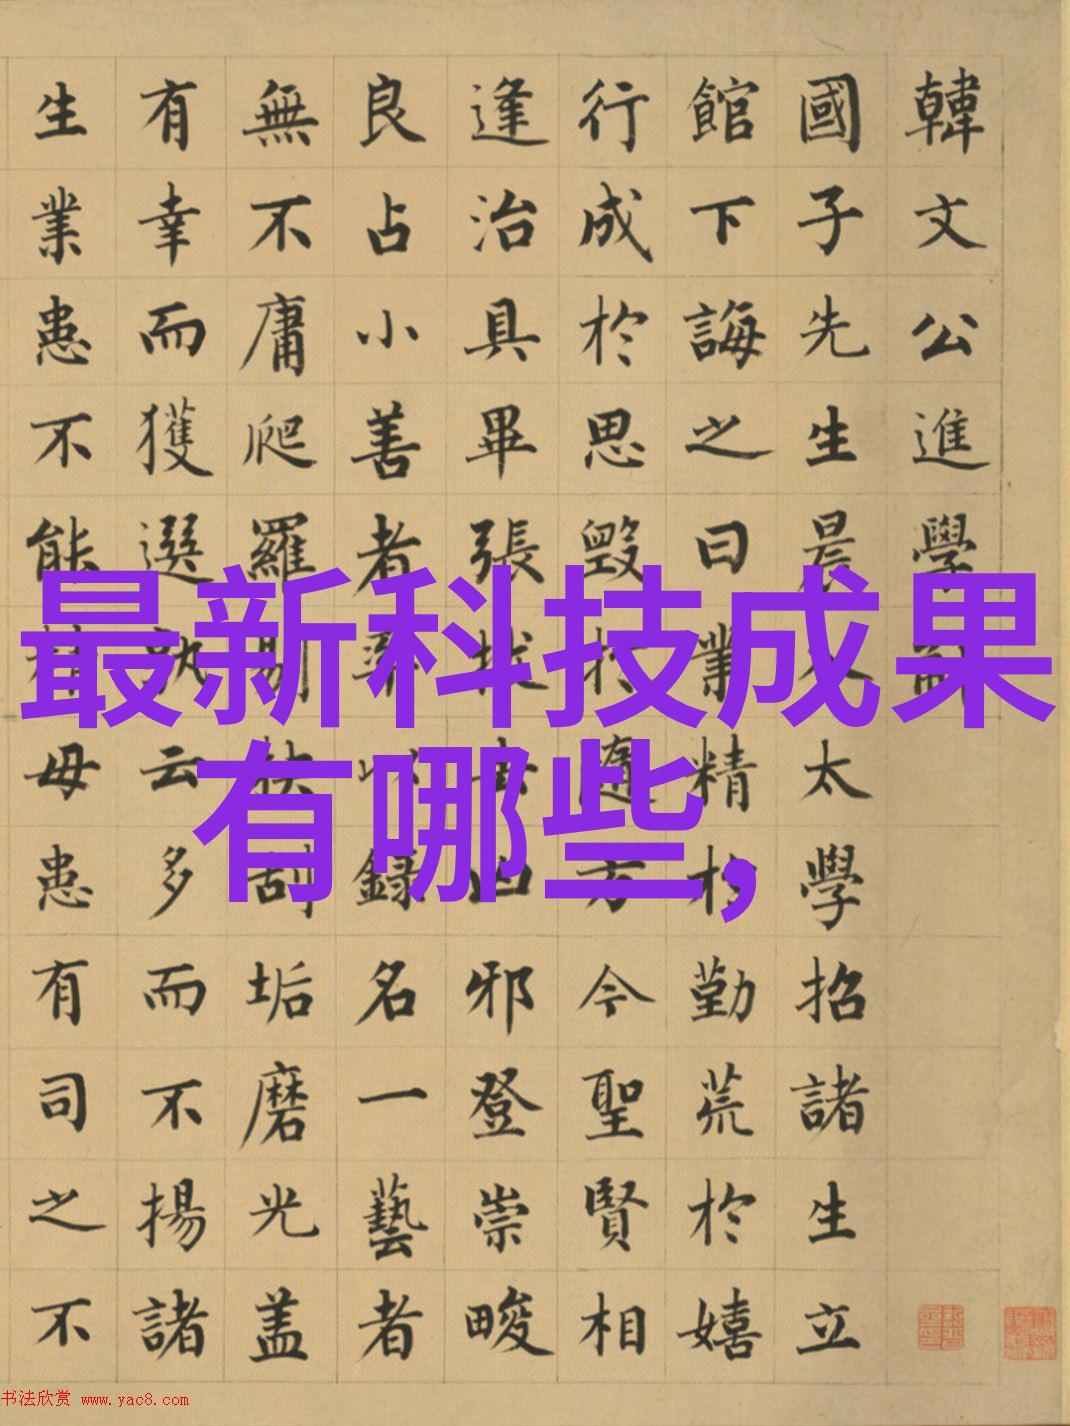 韓文公進學解
國子先生晨入太學招諸生立
館下誨之曰業精於勤荒於嬉
行成於思毀於隨方今聖賢相
逢治具畢張拔去凶邪登崇畯
良占小善者率以錄名一藝者
無不庸爬羅剔抉刮垢磨光盖
有幸而獲選孰云多而不揚諸
生業患不能精毋患有司之不
最新科技成果
有哪些,
书法欣赏 www.yac8.com